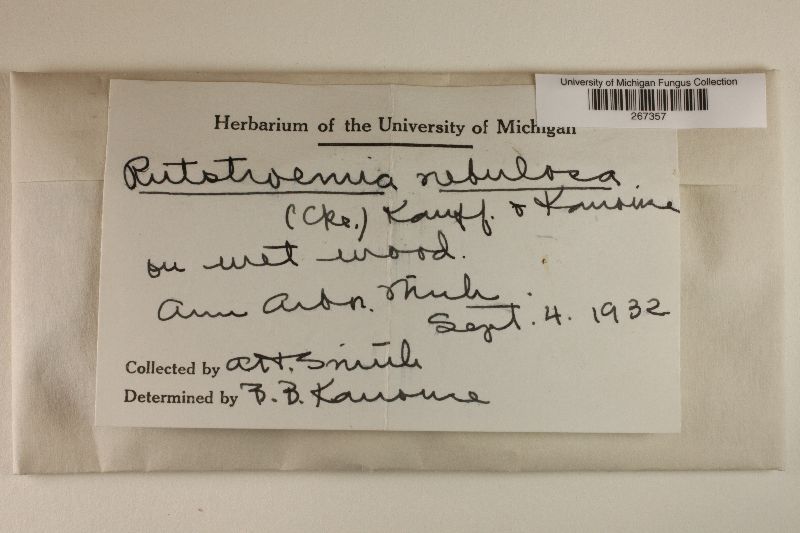 University of Michigan Fungus Collection
267357
Herbarium of the University of Michigan
Rutstroemia nebulosa
(Cke.) Kauff. & Kanouse
on wet wood.
Ann Arbor. Mich.
Sept. 4. 1932
Collected by A.H. Smith
Determined by B.B. Kanouse